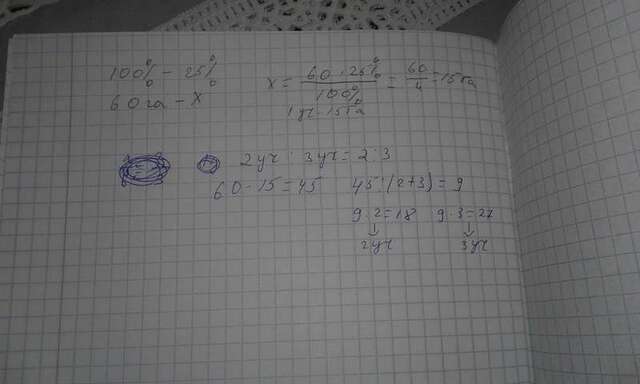 100% - 25%
60 га - х
х = 60 · 25% / 100% = 60/4 = 15 га
1 уч - 15 га
2 уч : 3 уч = 2 : 3
60 - 15 = 45
45 : (2+3) = 9
9 · 2 = 18
9 · 3 = 27
2 уч
3 уч